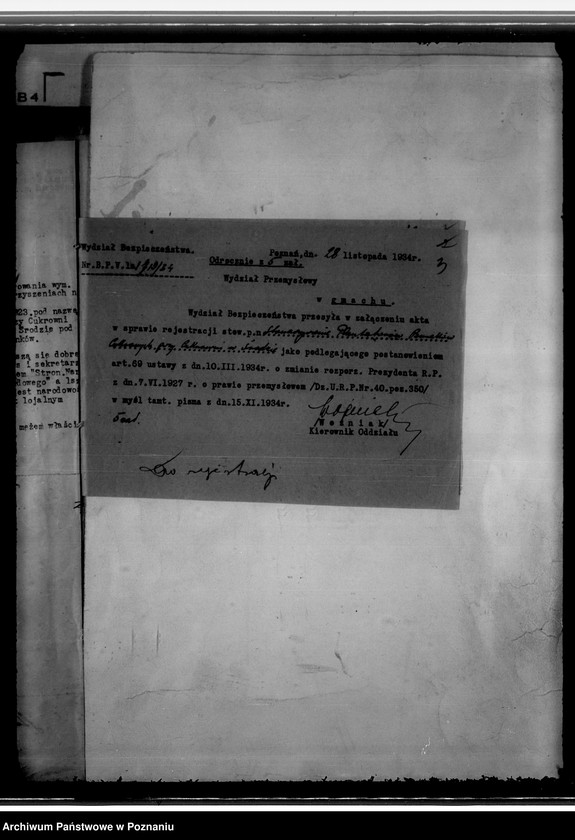 B4
owania wym.
rzyszeniach n
923.pod nazwą
zy Cukrowni
Środzie pod
nków.
szą się dobrą
z i sekretarz
em "Stron.Nar
dowego" a 1sz
est narodowo
lojalnym
mężem właści
Wydział Bezpieczeństwa.
Nr.B.P.V.1a/9/3/34
Poznań,dn. 28 listopada 1934r.
Odręcznie z 5 zał.
Wydział Przemysłowy
w gmachu.
Wydział Bezpieczeństwa przesyła w załączeniu akta
w sprawie rejestracji stow.p.n. Stowarzyszenie Plantatorów Buraków
Cukrowych przy Cukrowni w Środzie jako podlegającego postanowieniom
art.69 ustawy z dn.10.III.1934r. o zmianie rozporz. Prezydenta R.P.
z dn.7.VI.1927 r. o prawie przemysłowem /Dz.U.R.P.Nr.40.poz.350/
w myśl tamt. pisma z dn.15.XI.1934r.
5 zał.
/Woźniak/
Kierownik Oddziału
Do rejestracji
Archiwum Państwowe w Poznaniu